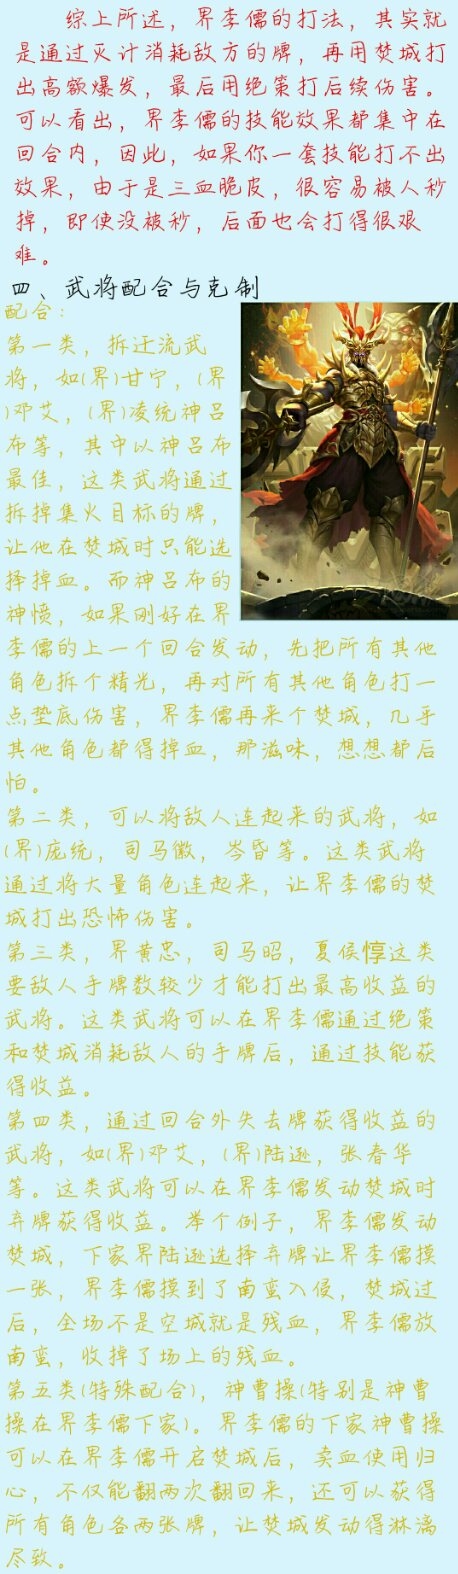 综上所述，界李儒的打法，其实就
是通过灭计消耗敌方的牌，再用焚城打
出高额爆发，最后用绝策打后续伤害。
可以看出，界李儒的技能效果都集中在
回合内，因此，如果你一套技能打不出
效果，由于是三血脆皮，很容易被人秒
掉，即使没被秒，后面也会打得很艰
难。
四、武将配合与克制
配合：
第一类，拆迁流武
将，如(界)甘宁，(界
)邓艾，(界)凌统神吕
布等，其中以神吕布
最佳，这类武将通过
拆掉集火目标的牌，
让他在焚城时只能选
择掉血。而神吕布的
神愤，如果刚好在界
李儒的上一个回合发动，先把所有其他
角色拆个精光，再对所有其他角色打一
点垫底伤害，界李儒再来个焚城，几乎
其他角色都得掉血，那滋味，想想都后
怕。
第二类，可以将敌人连起来的武将，如
(界)庞统，司马徽，岑昏等。这类武将
通过将大量角色连起来，让界李儒的焚
城打出恐怖伤害。
第三类，界黄忠，司马昭，夏侯惇这类
要敌人手牌数较少才能打出最高收益的
武将。这类武将可以在界李儒通过绝策
和焚城消耗敌人的手牌后，通过技能获
得收益。
第四类，通过回合外失去牌获得收益的
武将，如(界)邓艾，(界)陆逊，张春华
等。这类武将可以在界李儒发动焚城时
弃牌获得收益。举个例子，界李儒发动
焚城，下家界陆逊选择弃牌让界李儒摸
一张，界李儒摸到了南蛮入侵，焚城过
后，全场不是空城就是残血，界李儒放
南蛮，收掉了场上的残血。
第五类(特殊配合)，神曹操(特别是神曹
操在界李儒下家)。界李儒的下家神曹操
可以在界李儒开启焚城后，卖血使用归
心，不仅能翻两次翻回来，还可以获得
所有角色各两张牌，让焚城发动得淋漓
尽致。